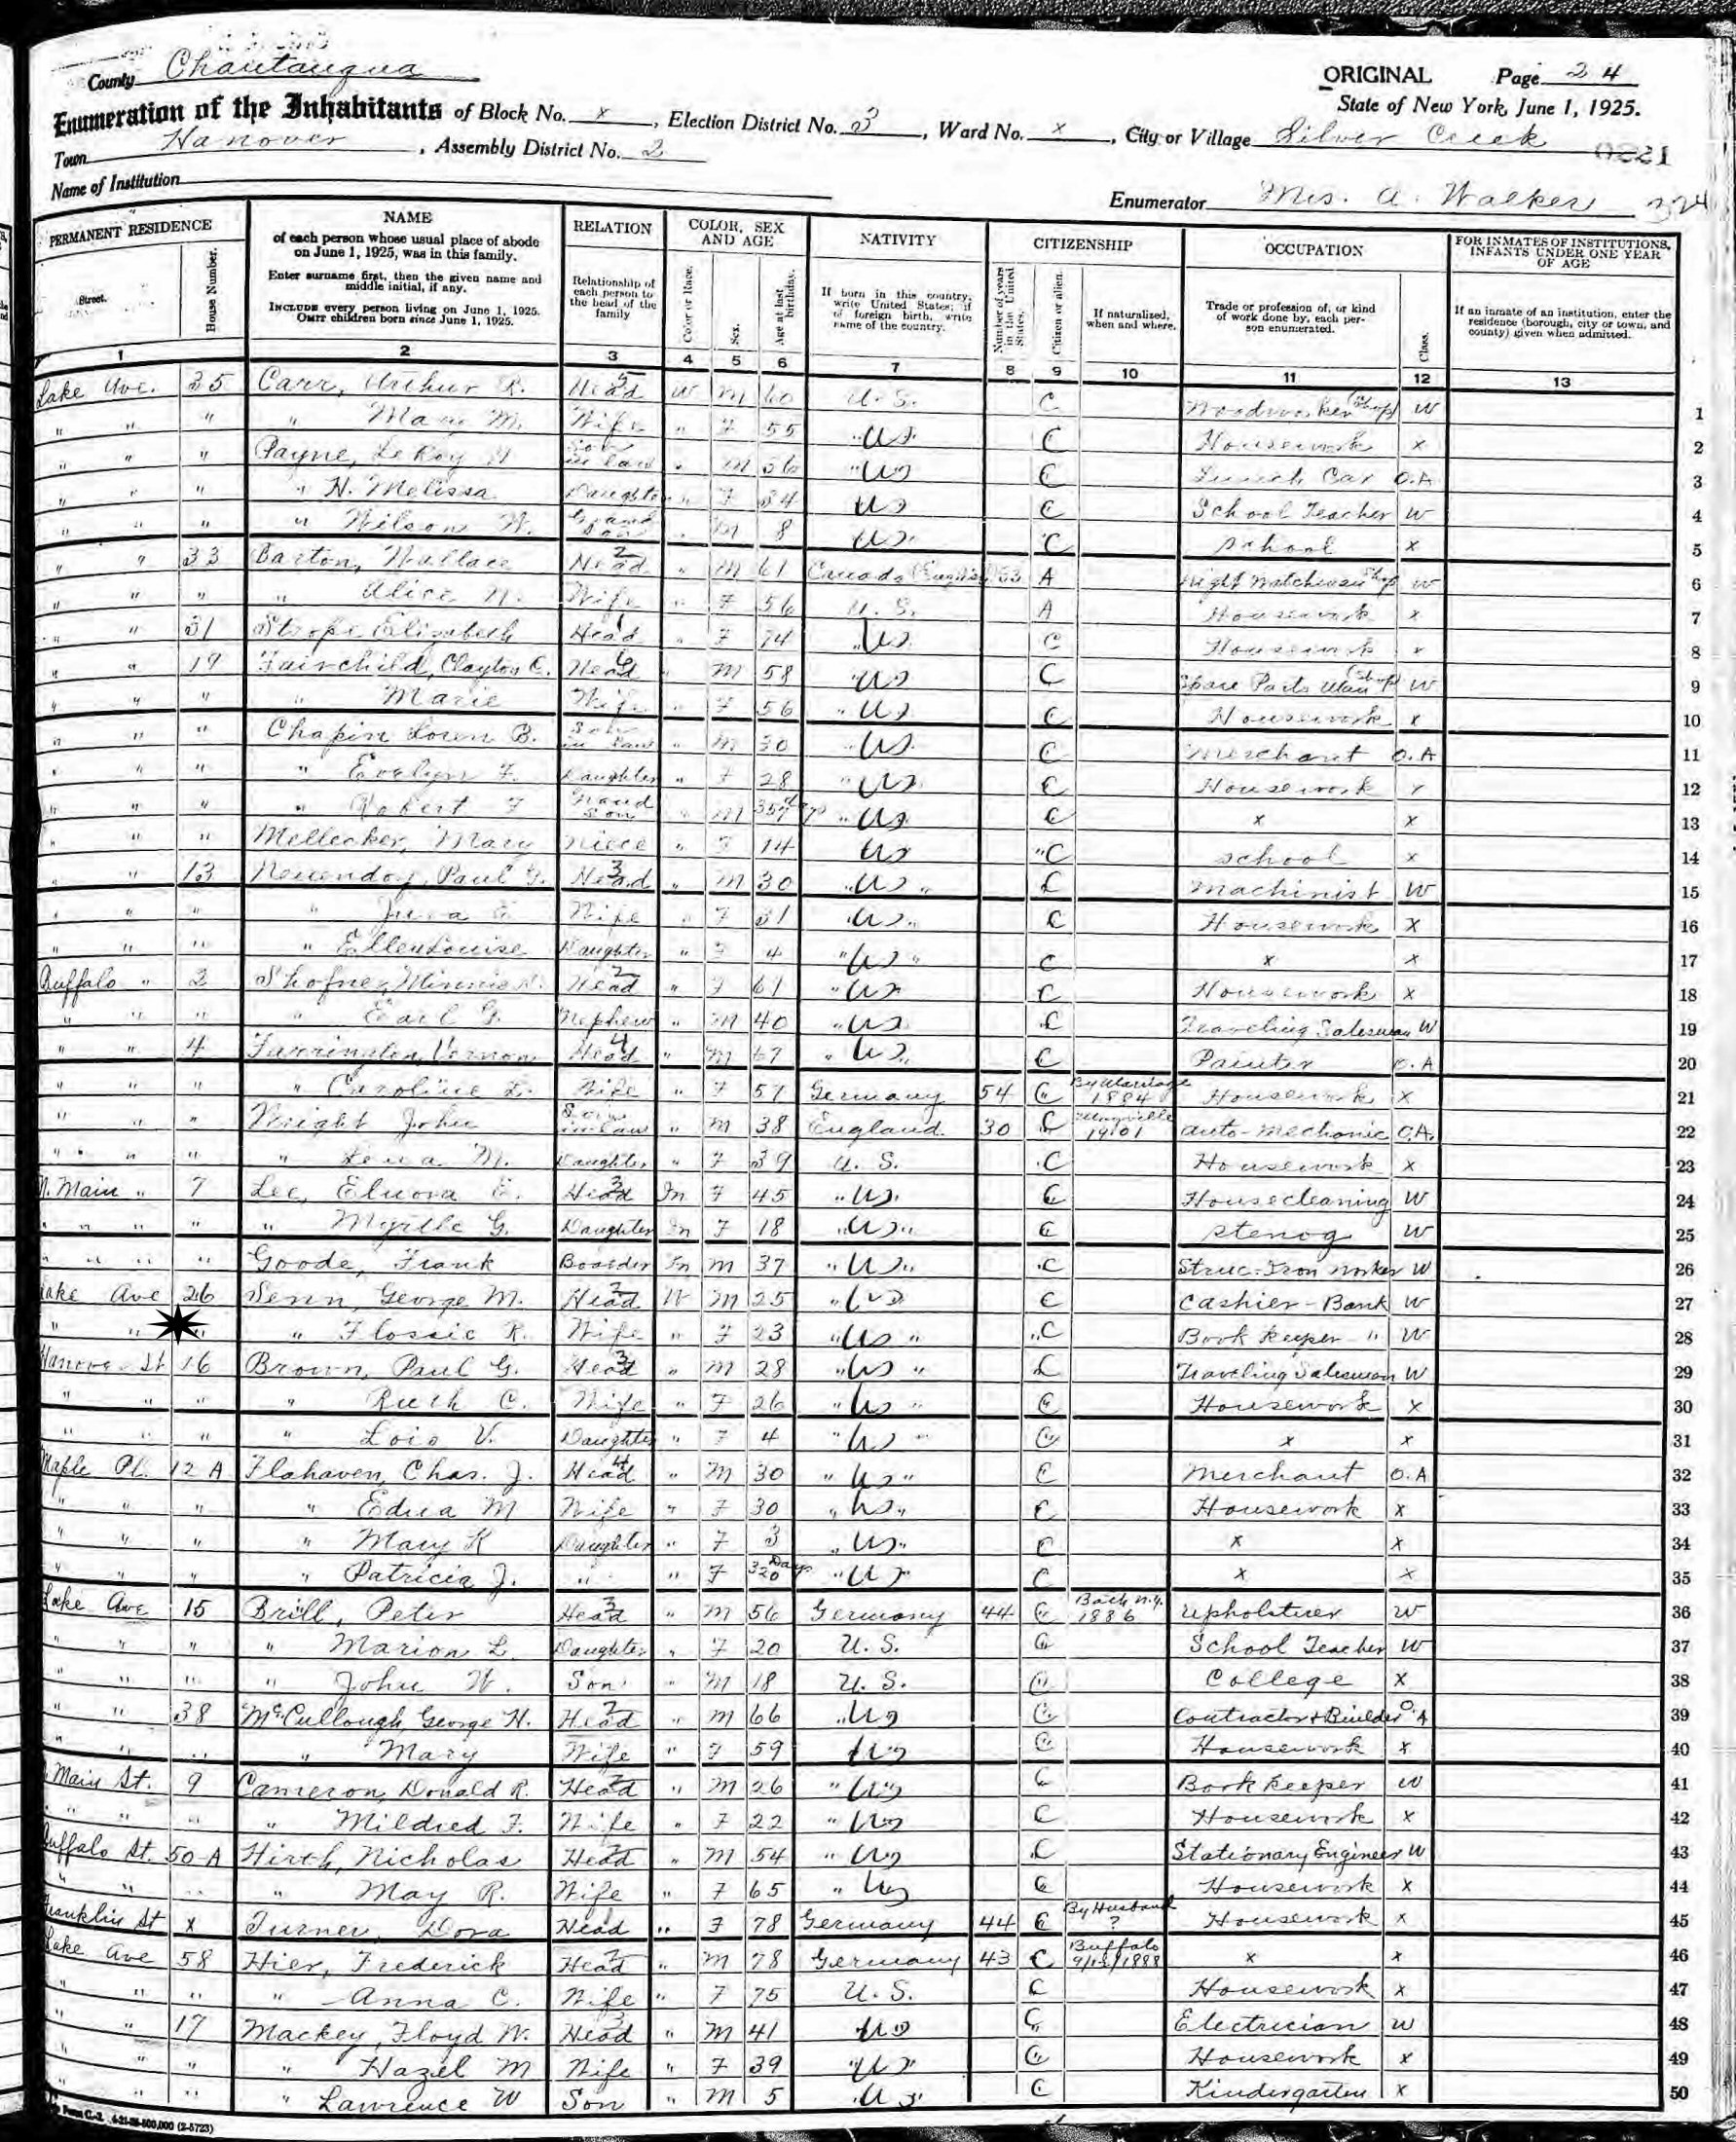 County Chautauqua
ORIGINAL Page 24
Enumeration of the Inhabitants of Block No. x, Election District No. 3, Ward No. x, City or Village Silver Creek
State of New York, June 1, 1925.
Town Hanover, Assembly District No. 2
0221
Name of Institution
Enumerator Mrs. A. Walker
PERMANENT RESIDENCE
NAME
of each person whose usual place of abode on June 1, 1925, was in this family.
Enter surname first, then the given name and middle initial, if any.
INCLUDE every person living on June 1, 1925.
OMIT children born since June 1, 1925.
RELATION
Relationship of each person to the head of the family
COLOR, SEX AND AGE
NATIVITY
If born in this country, write United States; if of foreign birth, write name of the country.
CITIZENSHIP
OCCUPATION
Trade or profession of, or kind of work done by, each person enumerated.
FOR INMATES OF INSTITUTIONS, INFANTS UNDER ONE YEAR OF AGE
If an inmate of an institution, enter the residence (borough, city or town, and county) given when admitted.
Street. House Number. Color or Race. Sex. Age at last birthday. Number of years in the United States. Citizen or alien. If naturalized, when and where. Class.
1 2 3 4 5 6 7 8 9 10 11 12 13
Lake Ave. 35 Carr, Arthur R. Head 5 W M 60 U.S. C Woodworker Shop W 1
" " " " Mary M. Wife " F 55 " US. C Housework x 2
" " " Payne, LeRoy Son in law " M 36 " US C Lunch Car O.A 3
" " " " H. Melissa Daughter " F 34 US C School Teacher W 4
" " " " Wilson W. Grand Son " M 8 US. C School x 5
" " 33 Barton, Wallace Head 2 " M 61 Canada English 53 A Night Watchman Shop W 6
" " " " Alice N. Wife " F 56 U.S. A Housework x 7
" " 31 Strope Elizabeth Head 1 " F 74 US C Housework x 8
" " 19 Fairchild, Clayton C. Head 6 M 58 " US C Spare Parts Man Shop W 9
" " " Marie Wife " F 56 " US. C Housework x 10
" " " Chapin Loren B. Son in law " M 30 " US. C Merchant O.A 11
" " " " Evelyn F. Daughter " F 28 " US C Housework x 12
" " " " Robert F Grand Son " M " US C x x 13
" " " Mellecker, Mary Niece " F 14 US " C School x 14
" " 13 Neuendorf, Paul G. Head 3 " M 30 " US " C Machinist W 15
" " " " Wife " F 31 " US. C Housework X 16
" " " " Ellen Louise Daughter " F 4 " US " C x x 17
Buffalo " 2 Shofner, Minnie Head 2 " F 61 " US C Housework x 18
" " " " Earl G. Nephew " M 40 " US C Traveling Salesman W 19
" " 4 Farrington, Vernon Head 4 " M 67 " US. C Painter O.A 20
" " " " Caroline L. Wife " F 57 Germany 54 C By Marriage 1884 Housework X 21
" " " Wright John Son in law " M 38 England 30 C 1901 Auto-mechanic O.A. 22
" " " " Lena M. Daughter " F 39 U.S. C Housework x 23
N. Main " 7 Lee, Elnora E. Head 3 In F 45 " US. C Housecleaning W 24
" " " " " Myrtle G. Daughter In F 18 " US " C Stenog W 25
" " " " Goode, Frank Boarder In M 37 " US " C Struc-Iron Worker W 26
Lake Ave 26 Senn, George M. Head 2 W M 25 " US C Cashier-Bank W 27
" " " " Flossie R. Wife " F 23 " US " " C Book keeper " W 28
Hanover St 16 Brown, Paul G. Head 3 " M 28 " US " C Traveling Salesman W 29
" " " " Ruth C. Wife " F 26 " US " C Housework x 30
" " " " Lois V. Daughter " F 4 " US " C x x 31
Maple Pl. 12 A Flahaven, Chas. J. Head 4 " M 30 " US " C Merchant O.A 32
" " " " Edna M Wife " F 30 " US " C Housework X 33
" " " " Mary K Daughter " F 3 " US " C x x 34
" " " " Patricia J. " " F 320 Days " US C x x 35
Lake Ave 15 Brill, Peter Head 3 " M 56 Germany 44 C Bath N.Y. 1886 Upholsterer W 36
" " " " Marion L. Daughter " F 20 U.S. C School Teacher W 37
" " " " John W. Son " M 18 U.S. C College X 38
" " 38 McCullough, George H. Head 2 " M 66 " US C Contractor & Builder O.A 39
" " " " Mary Wife " F 59 US C Housework x 40
Main St. 9 Cameron, Donald R. Head 2 " M 26 " US C Book Keeper W 41
" " " " Mildred F. Wife " F 22 " US C Housework x 42
Buffalo St. 50-A Hirth, Nicholas Head 2 " M 54 " US C Stationary Engineer W 43
" " " " May R. Wife " F 65 " US C Housework x 44
Franklin St x Turner, Dora Head " F 78 Germany 44 C By Husband ? Housework x 45
Lake Ave 58 Hier, Frederick Head 2 " M 78 Germany 43 C Buffalo 1888 x x 46
" " " " Anna C. Wife " F 75 U.S. C Housework x 47
" " 17 Mackey, Floyd W. Head 3 " M 41 US C Electrician W 48
" " " " Hazel M Wife " F 39 " US C Housework x 49
" " " " Lawrence W Son " M 5 US C Kindergarten x 50